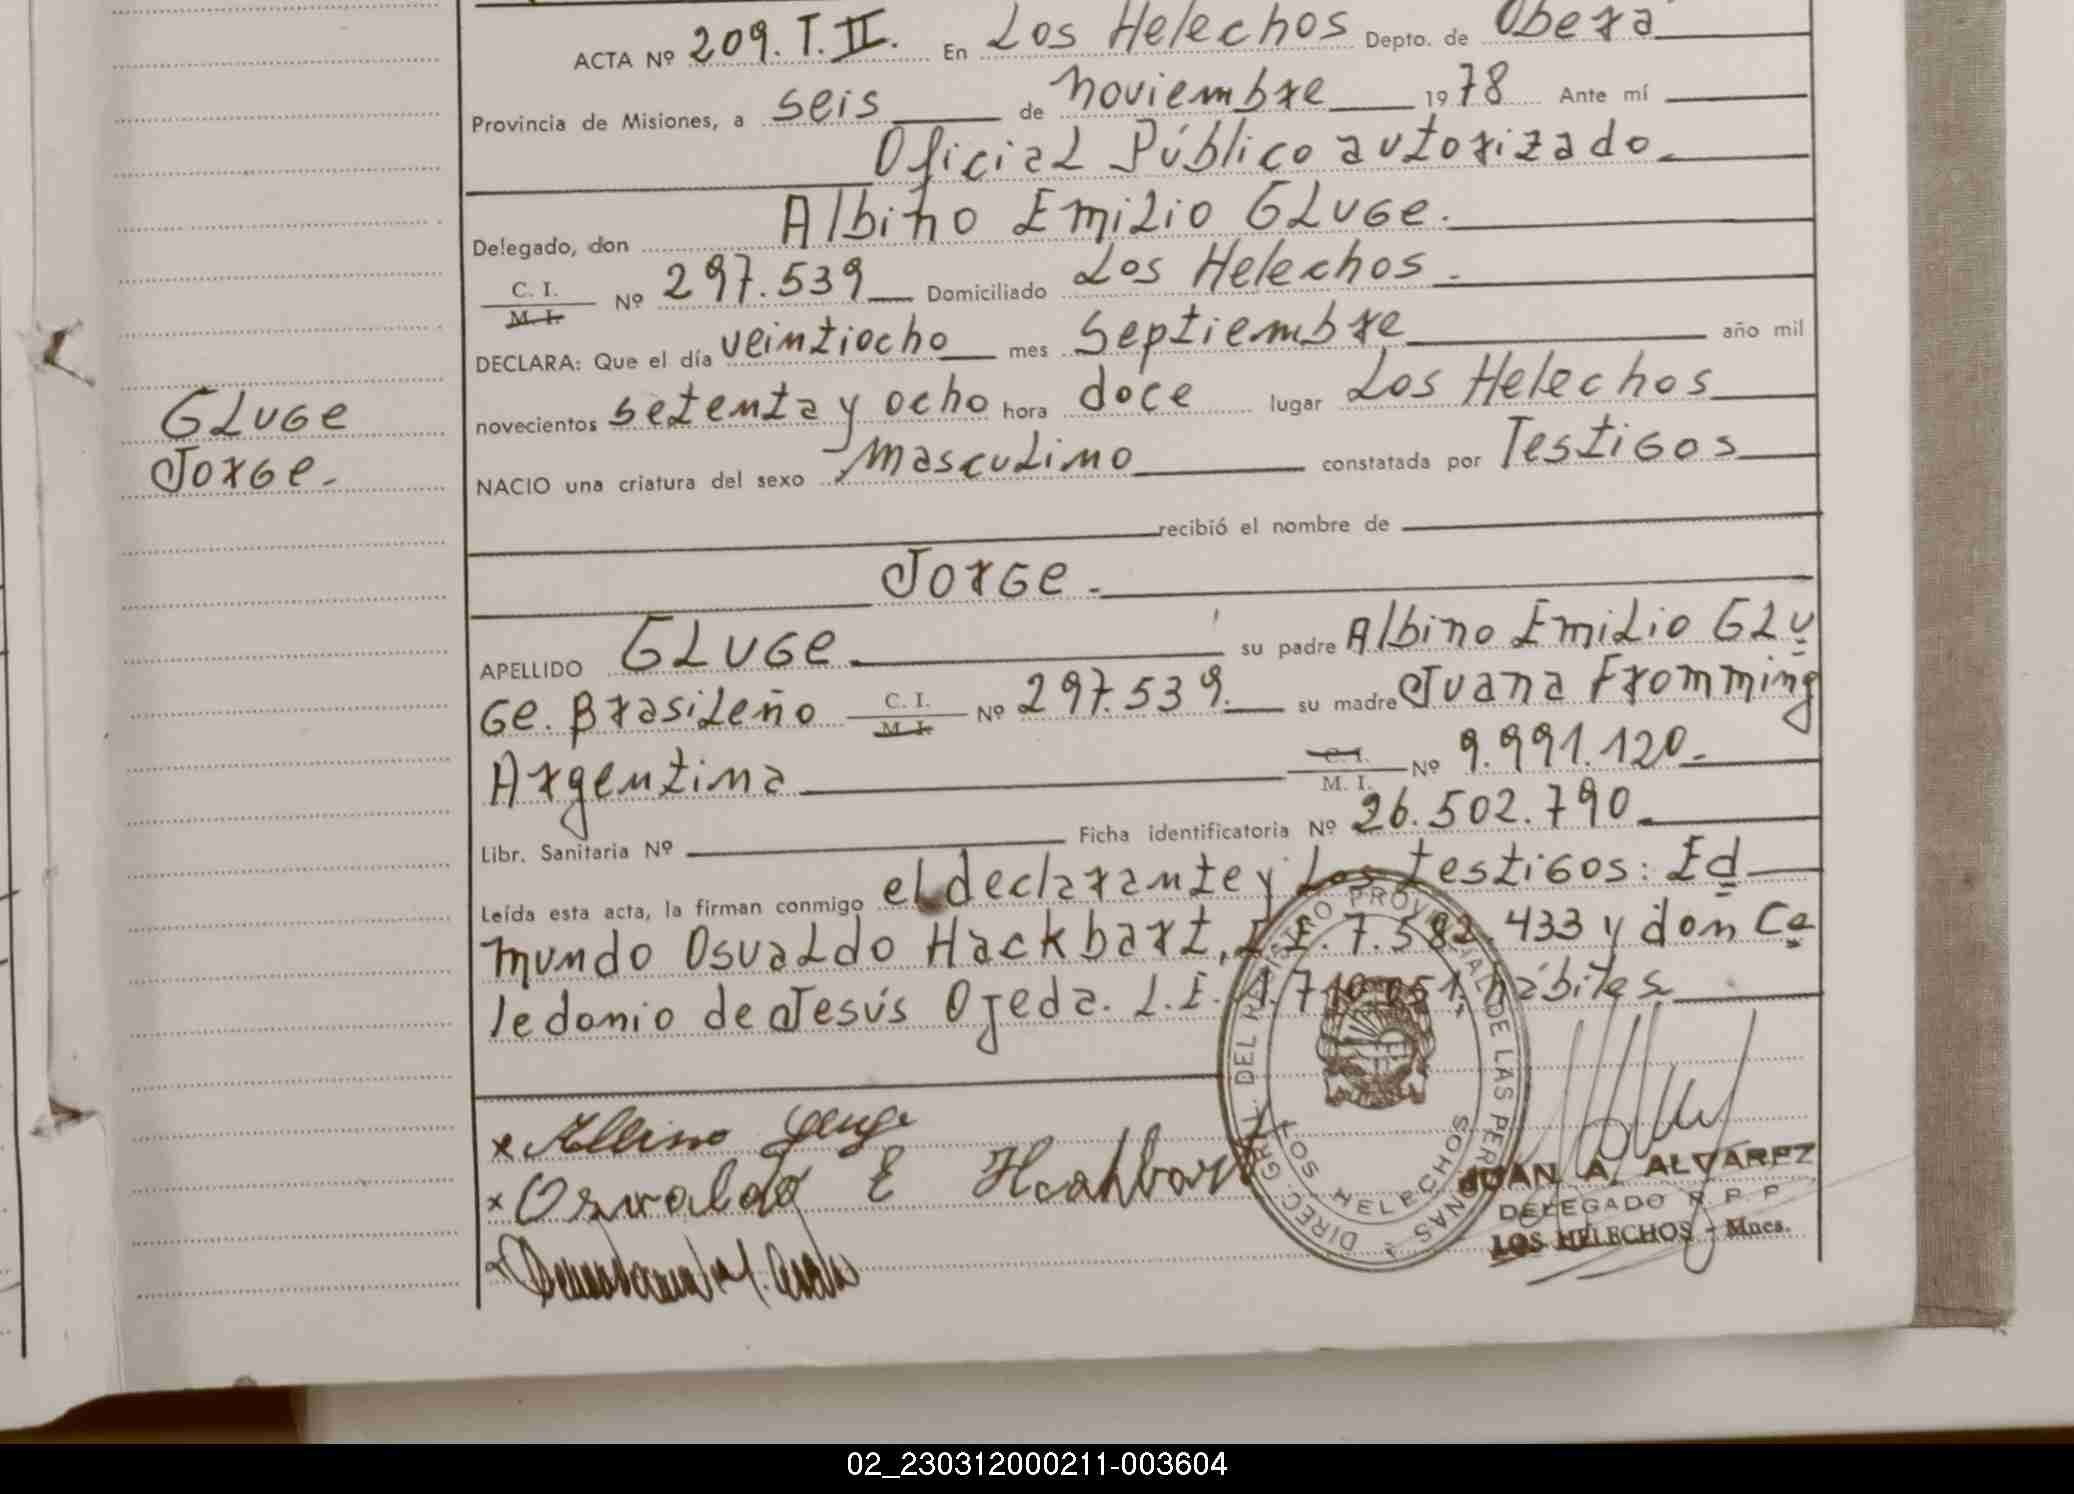 ACTA Nº 209. T. II. En Los Helechos Depto. de Oberá
Provincia de Misiones, a seis de noviembre 1978 Ante mí
Oficial Público autorizado.
Delegado, don Albino Emilio GLUGe.
C. I.
M. I. Nº 297.539 Domiciliado Los Helechos.
DECLARA: Que el día veintiocho mes Septiembre año mil
novecientos setenta y ocho hora doce lugar Los Helechos
GLUGe
NACIO una criatura del sexo masculino constatada por Testigos
JorGe.
recibió el nombre de
JorGe.
APELLIDO GLUGe su padre Albino Emilio GLU
Ge. Brasileño C. I. M. I. Nº 297.539. su madre Juana Fromming
Argentina C. I. M. I. Nº 9.991.120.
Libr. Sanitaria Nº Ficha identificatoria Nº 26.502.790
Leída esta acta, la firman conmigo el declarante y Los testigos: Ed
mundo Osvaldo Hackbart, L.E. 7.582.433 y don Ce
ledonio de Jesús Ojeda. L.E. hábiles
Albino Gluge
Osvaldo E Hackbart
DIREC. GRAL. DEL REGISTRO PROVINCIAL DE LAS PERSONAS
LOS HELECHOS
JUAN A. ALVAREZ
DELEGADO R. P. P.
LOS HELECHOS - Mnes.
02_230312000211-003604